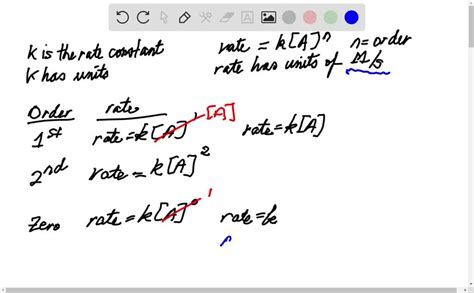 k is the rate constant
k has units
rate = k[A]ⁿ n = order
rate has units of M/s
Order rate
1st rate = k[A]¹ [A] rate = k[A]
2nd rate = k[A]²
Zero rate = k[A]⁰ 1 rate = k